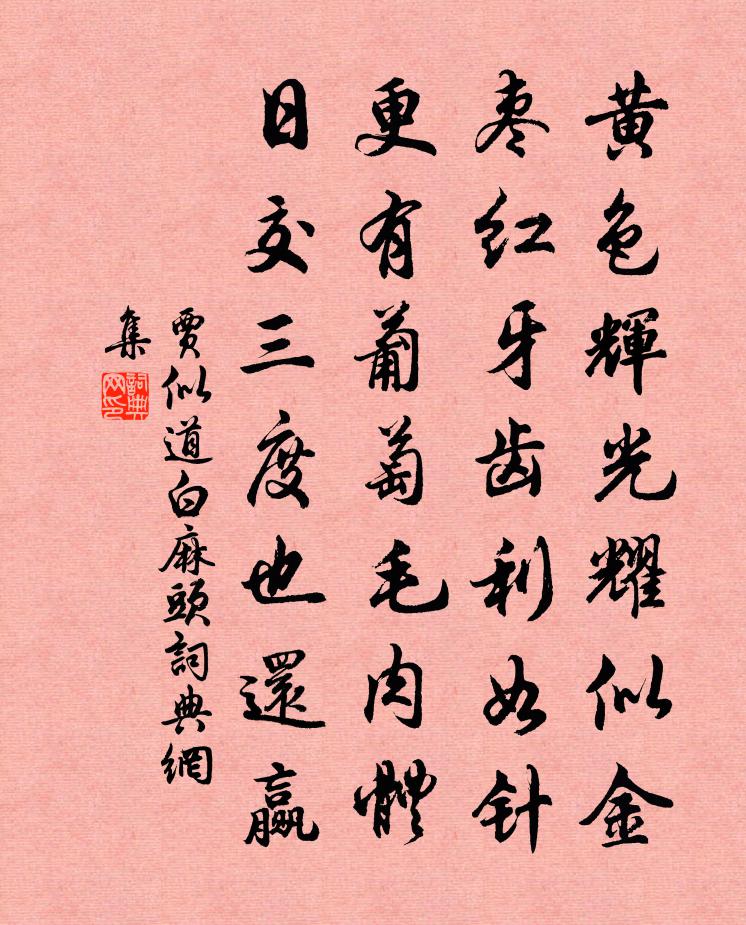 黄色輝光耀似金
枣红牙齿利如针
更有葡萄毛肉體
日交三度也還贏
賈似道白麻頭詞典網
集
詞典
网印